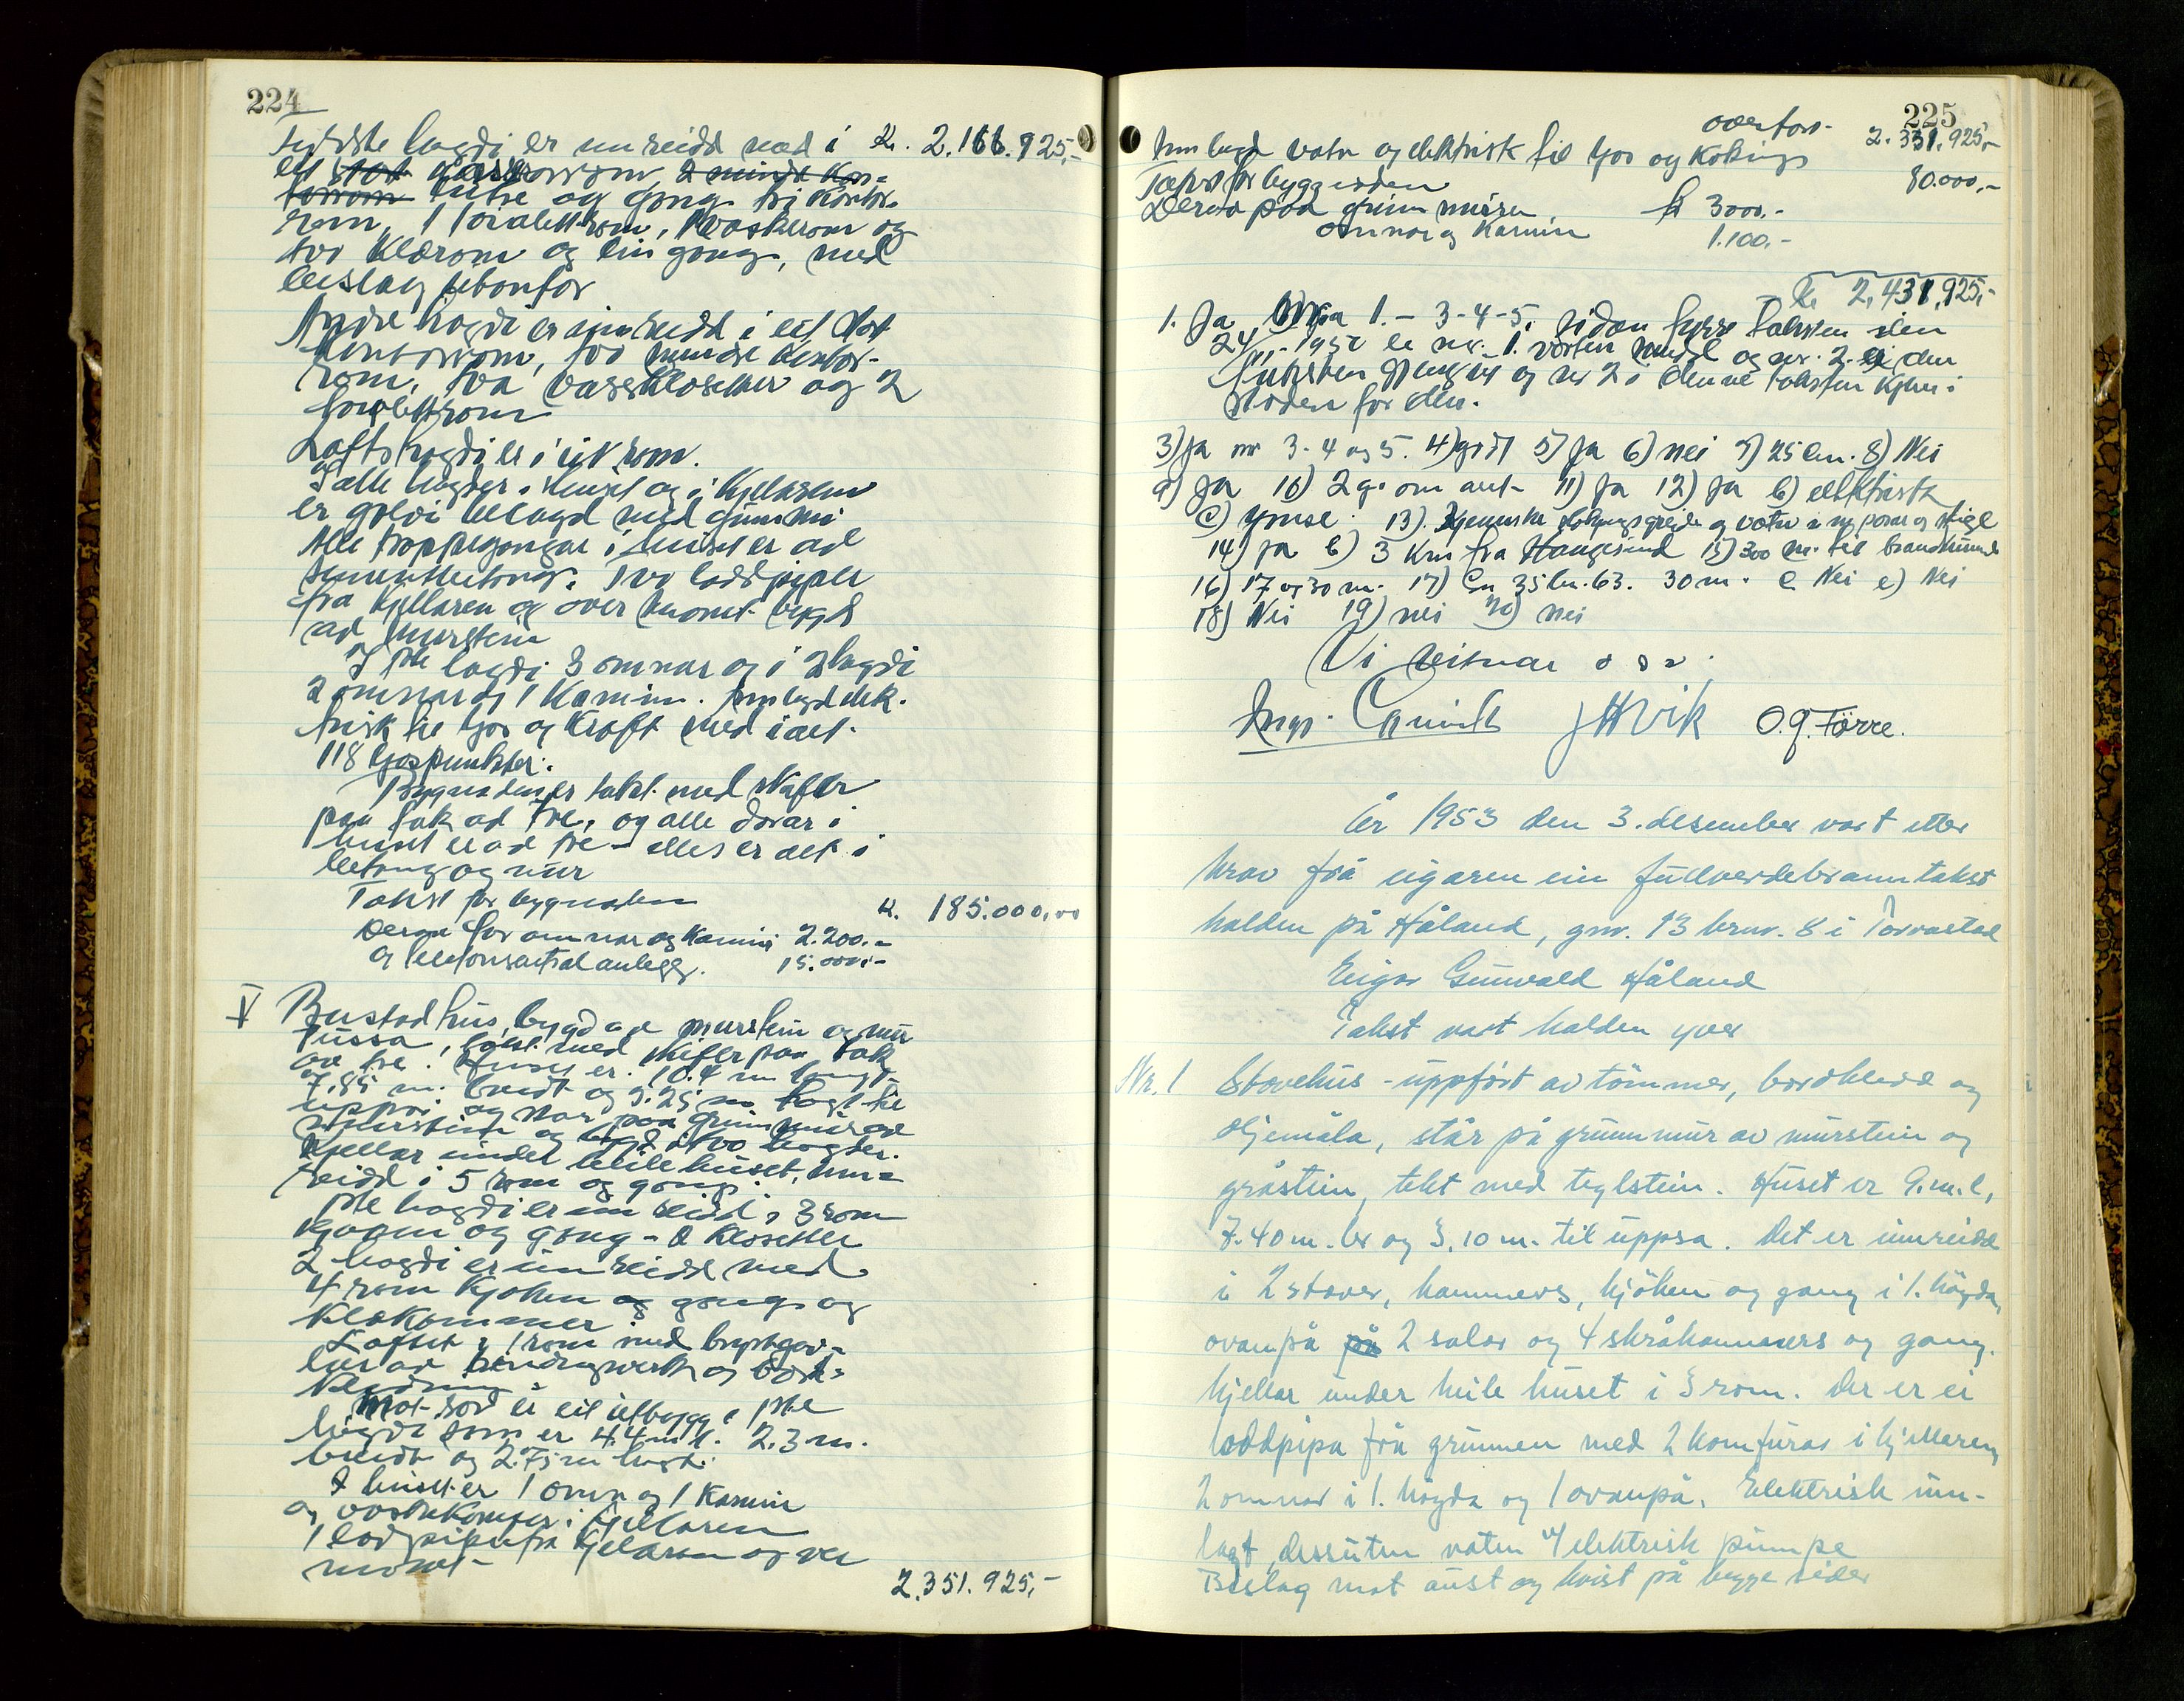 224
fyrste høgdi er innreidd med i Kr. 2.166.925,-
eit stort kassarom 2 mindre kon-
torrom lutre og gong tri kontor-
rom, 1 toalettrom, 1 vaskerom og
tvo klærom og ein gong, med
beislag utanfor
Andre høgdi er innreidd i eit stort
kontorrom, tvo mindre kontor-
rom, tva vassklosetter og 2
toalettrom
Loftshøgdi er i eit rom.
I alle høgder i huset og i kjellaren
er golvi belagd med gummi
Alle troppegongar i huset er ad
sementbetong. Tvo loddpiper
fra kjellaren og over mønet bygd
ad murstein
I 1ste høgdi 3 omnar og i 2 høgdi
2 omnar og 1 kamin. Innlagd elek-
trisk til ljos og kraft med i alt
118 ljospunkter.
Bygnaden er tekt med skifer
paa tak ad tre, og alle dørar i
huset er ad tre - elles er alt i
betong og mur
Takst for bygnaden K. 185.000,00
Derav for omnar og kamin 2.200.-
og telefonsentralanlegg. 15.000,-
V Bustadhus, bygd av murstein og mur
pussa, tekt med skifer paa tak
av tre. Huset er 10.4 m langt
og 7.85 m. breidt og 5.25 m høgt til
uppsa og star paa grunnmur av
murstein og bygd i tvo høgder.
Kjellar under heile huset, inn-
reidd i 5 rom og gong.
1ste høgdi er innreidd i 3 rom
kjøken og gong - 2 klosetter
2 høgdi er innreidd med
4 rom kjøken og gong og
klekammer
Loftet i 1 rom med brystgav-
ler av bindingsverk og bord-
kledning
Mot sør er eit utbygg i 1ste
høgdi som er 4.4 m l. 2.3 m.
breidt og 2.75 m høgt.
I huset er 1 omn og 1 kamin
og vaskekomfyr i kjellaren
1 lodpipe fra kjellaren og over
mønet
2.351.925,-
225
overført 2.351.925,-
Innlagd vatn og elektrisk til ljos og koking
Takst for byggnaden 80.000,-
Derav paa grunnmuren kr 3000.-
omnar og kamin 1.100,-
Kr. 2,431,925,-
1. Ja 1. - 3-4-5. sidan fyrre taksten den
24/11 - 1950 er nr. 1. vorten og nr. 2. i den
taksten og nr 2 i denne taksten kjem i
staden for den.
3) Ja nr 3-4 og 5. 4) godt 5) Ja 6) nei 7) 25 cm. 8) Nei
9) Ja 10) 2 g. om aaret 11) Ja 12) Ja b) elektrisk
c) ymse 13). Kjemiske slokningsgreide og vatn i og stige
14) Ja b) 3 km fra Haugesund 15) 300 m. til brandkumme
16) 17 og 30 m. 17) 35 cm. 63. 30 m. c Nei e) Nei
18) Nei 19) nei 20) nei
Vi vitnar o s v.
J H Vik O. J. Førre.
År 1953 den 3. desember vart etter
krav frå eigaren ein fullverdebranntakst
halden på Håland, gnr. 13 brnr. 8 i Torvastad
Eigar Gunvald Håland
Takst vart halden yver
Nr. 1 Stovehus - uppført av tømmer, bordkledd og
oljemåla, står på grunnmur av murstein og
gråstein, tekt med teglstein. Huset er 9. m. l,
7.40 m. br og 5,10 m. til uppsa. Det er innreidd
i 2 stover, kammers, kjøken og gang i 1. høgda,
ovanpå på 2 salar og 4 skråkammers og gang.
Kjellar under heile huset i 3 rom. Der er ei
loddpipa frå grunnen med 2 komfurar i kjellaren,
2 omnar i 1. høgda og 1 ovanpå. Elektrisk inn-
lagt, dessuten vaten m/ elektrisk pumpe
Beslag mot aust og kvist på begge sider